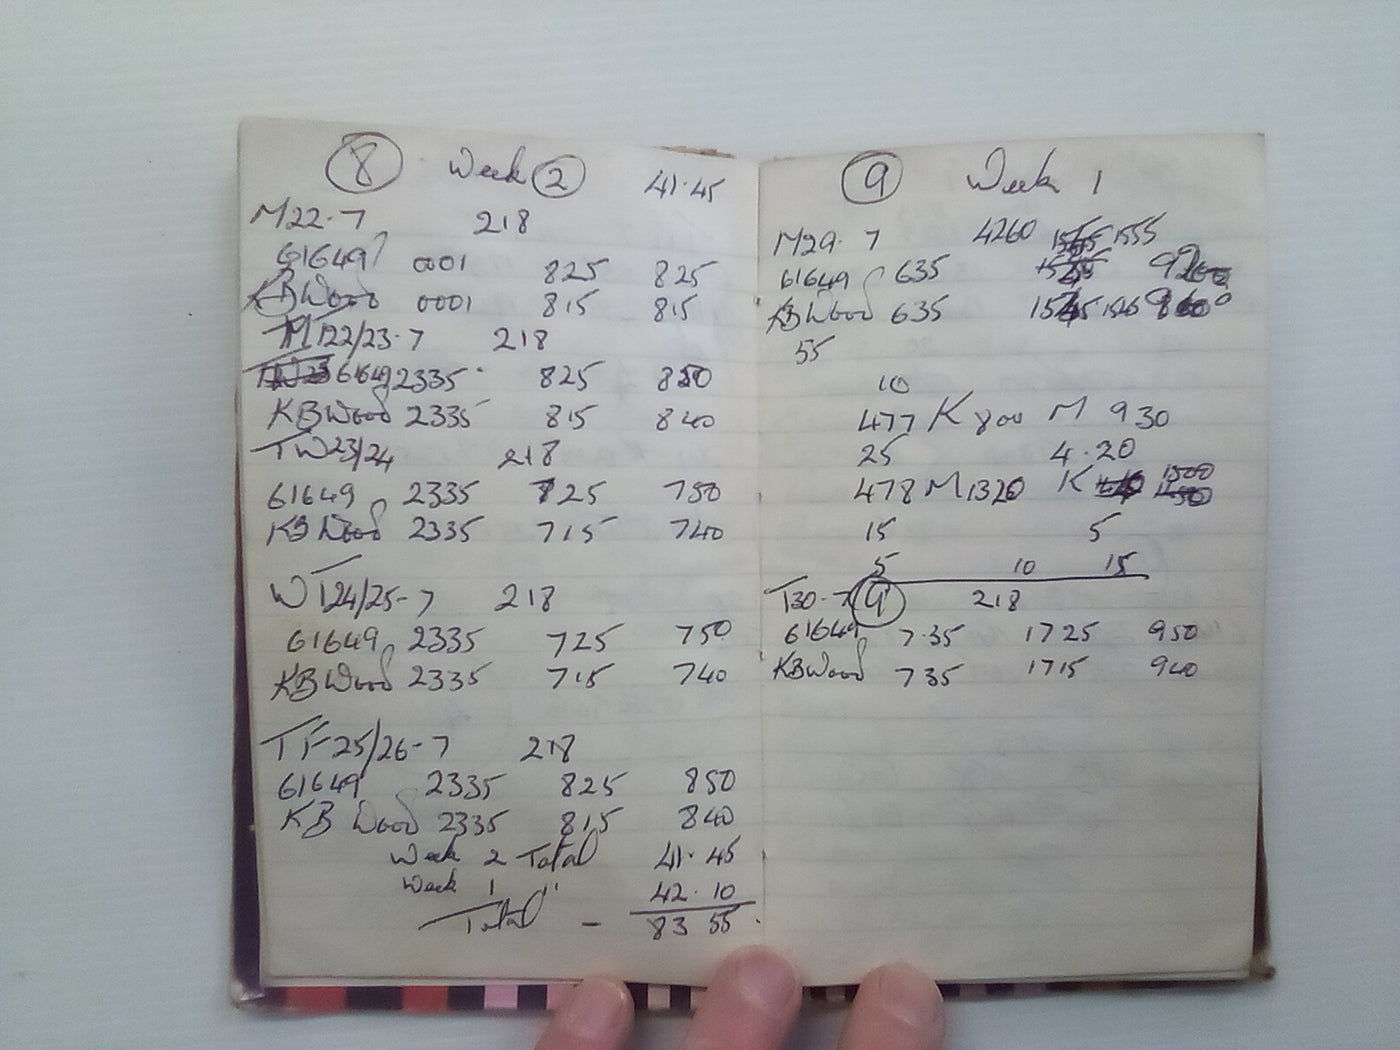 8 Week 2 41·45
M22·7 218
61649 0001 825 825
KBWood 0001 815 815
MT22/23·7 218
61649 2335 825 850
KBWood 2335 815 840
TW23/24 218
61649 2335 725 750
KBWood 2335 715 740
WT24/25-7 218
61649 2335 725 750
KBWood 2335 715 740
TF25/26-7 218
61649 2335 825 850
KB Wood 2335 815 840
Week 2 Total 41·45
Week 1 " 42·10
Total - 83 55
9 Week 1
M29·7 4260 1555
61649 635
KBWood 635
55
10
477 K 800 M 930
25 4·20
478 M1320 K 1500
15 5
5 10 15
T30-7 9 218
61649 7·35 1725 950
KBWood 735 1715 940